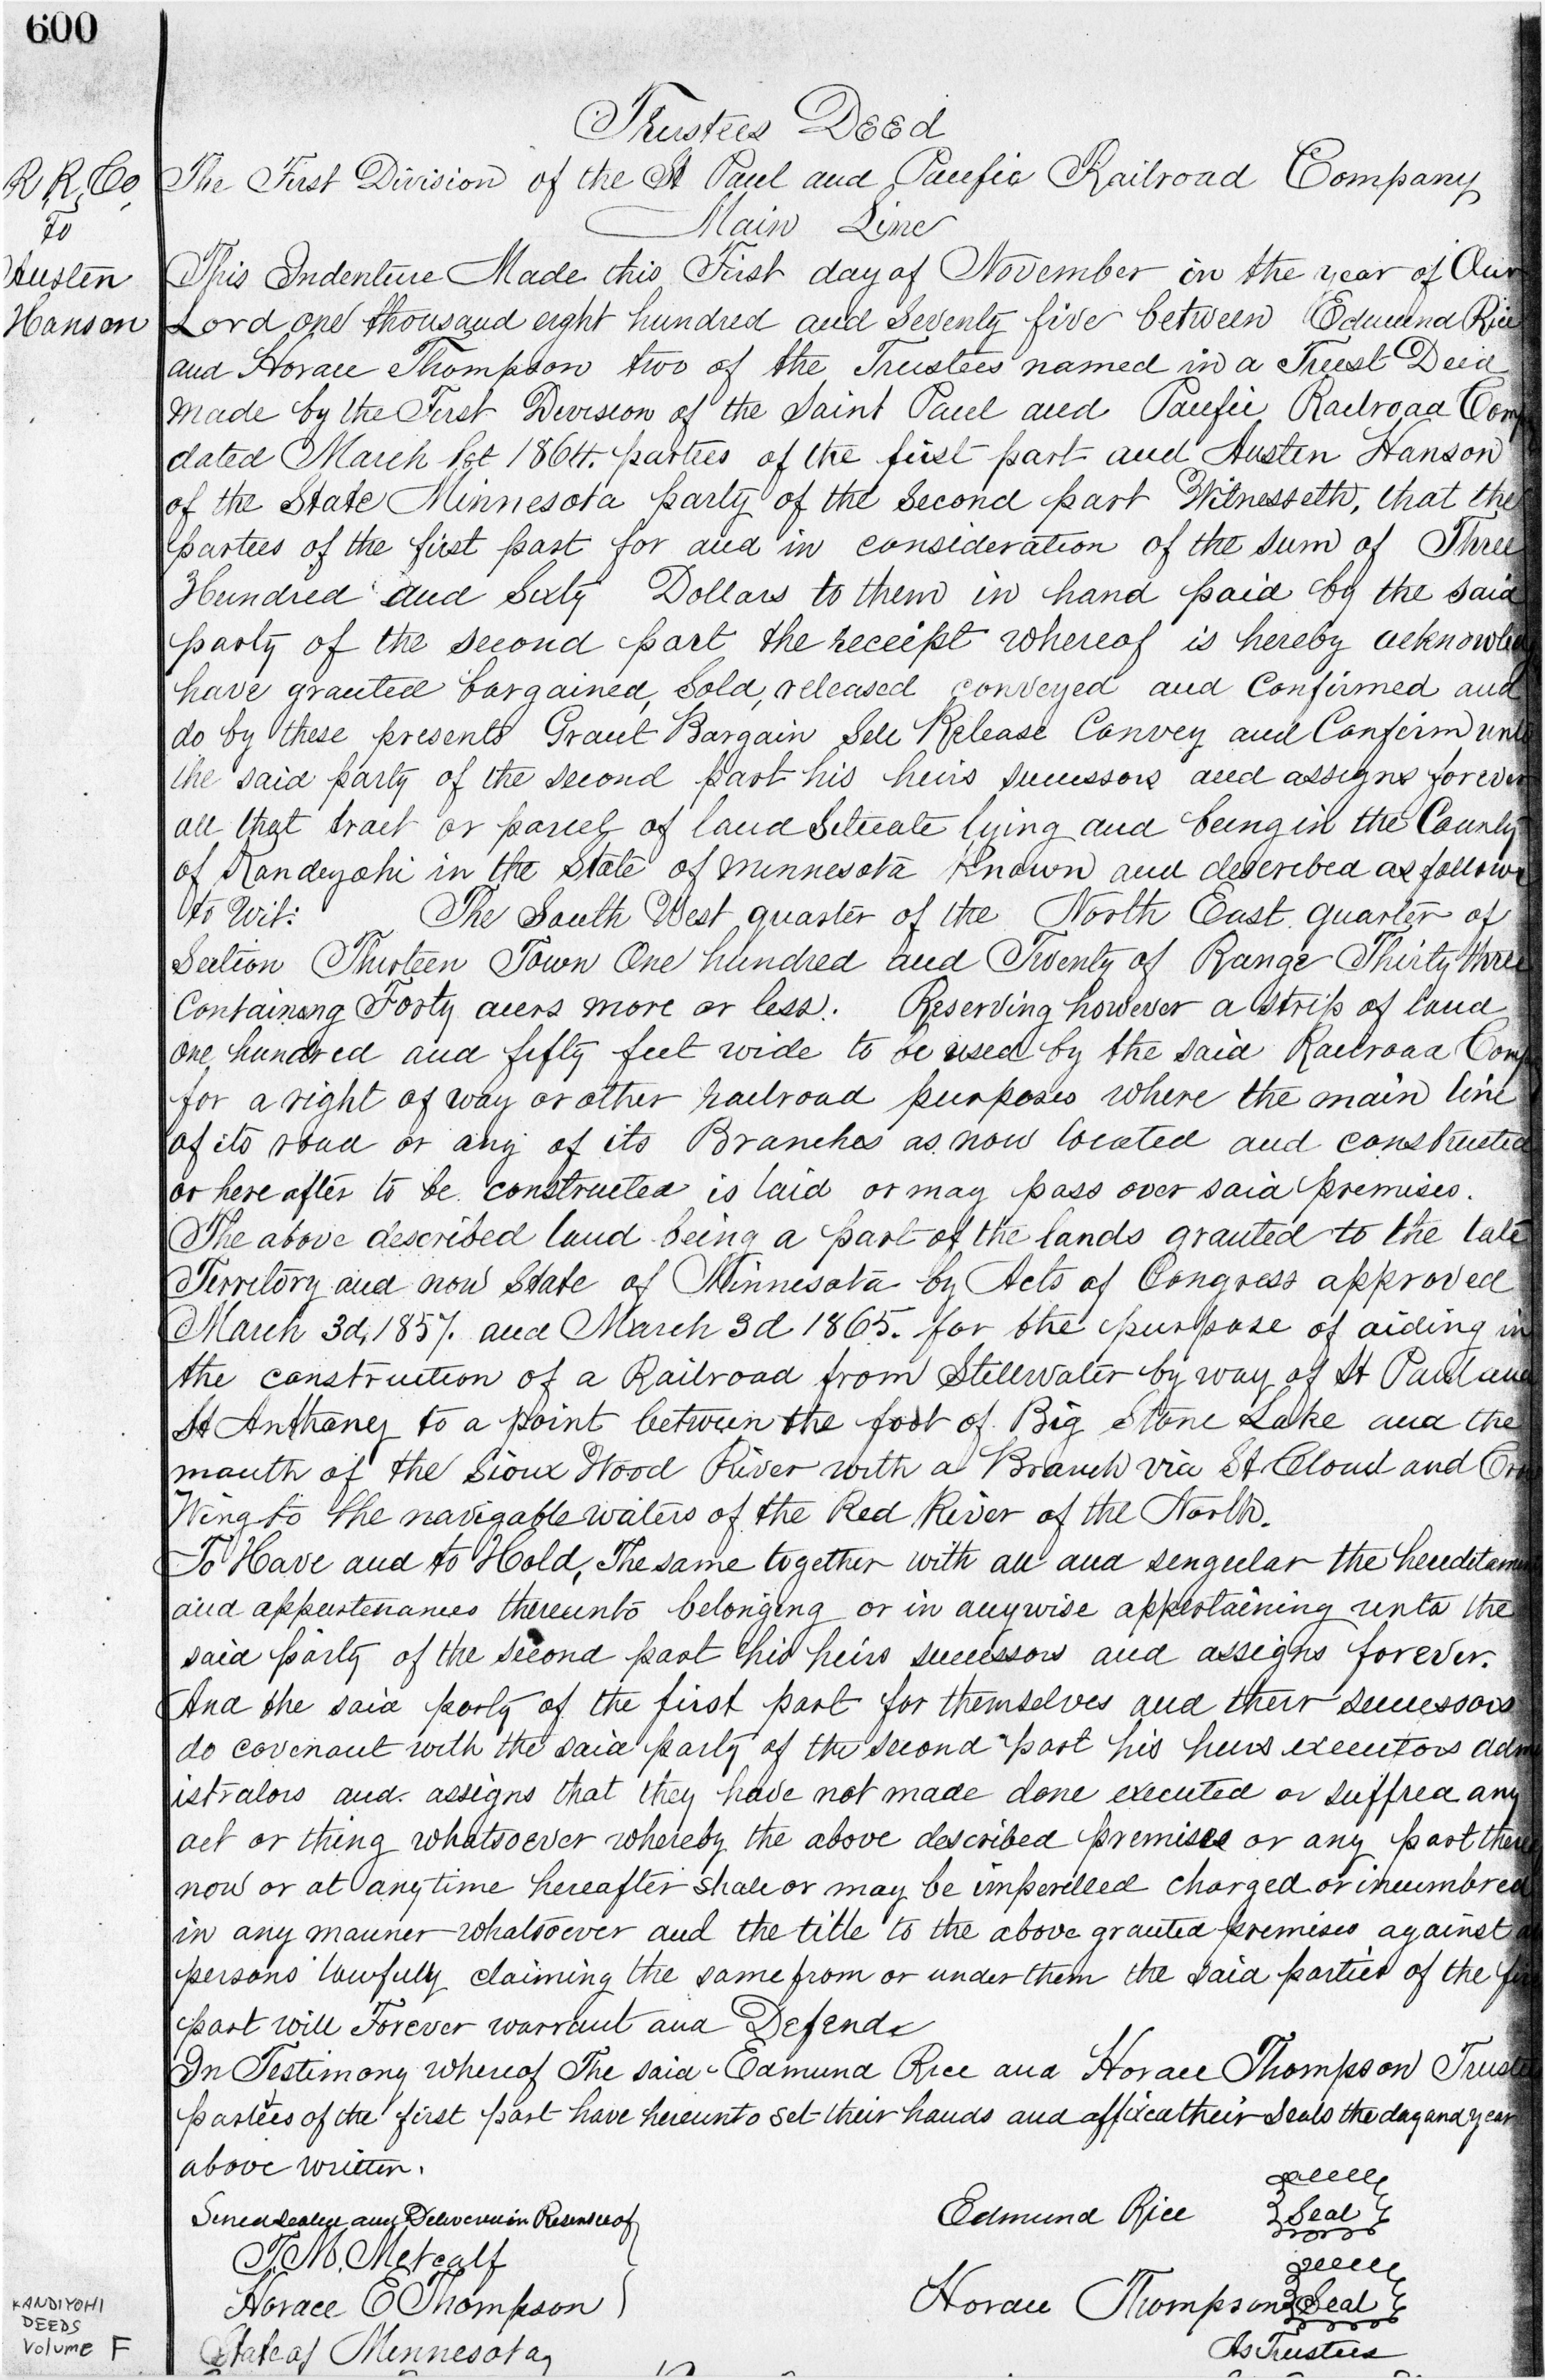 600
Trustees Deed
R. R. Co. The First Division of the St Paul and Pacific Railroad Company
To Main Line
Austen This Indenture Made this First day of November in the year of Our
Hanson Lord one thousand eight hundred and Seventy five between Edmund Rice
and Horace Thompson two of the Trustees named in a Trust Deed
made by the First Division of the Saint Paul and Pacific Railroad Comp
dated March 1st 1864. parties of the first part and Austen Hanson
of the State Minnesota party of the Second part Witnesseth, that the
parties of the first part for and in consideration of the sum of Three
Hundred and Sixty Dollars to them in hand paid by the said
party of the second part the receipt whereof is hereby acknowled
have granted bargained, Sold, released conveyed and Confirmed and
do by these presents Grant Bargain Sell Release Convey and Confirm unto
the said party of the second part his heirs successors and assigns forever
all that tract or parcel of land Situate lying and being in the County
of Kandiyohi in the State of Minnesota Known and described as follows
to Wit: The South West quarter of the North East quarter of
Section Thirteen Town One hundred and Twenty of Range Thirty three
Containing Forty acers more or less. Reserving however a strip of land
one hundred and fifty feet wide to be used by the said Railroad Comp
for a right of way or other railroad purposes where the main line
of its road or any of its Branches as now located and constructed
or here after to be constructed is laid or may pass over said premises.
The above described land being a part of the lands granted to the late
Territory and now State of Minnesota by Acts of Congress approved
March 3d, 1857. and March 3d 1865. for the purpose of aiding in
the construction of a Railroad from Stillwater by way of St Paul and
St Anthoney to a point between the foot of Big Stone Lake and the
mouth of the Sioux Wood River with a Branch via St Cloud and Crow
Wing to the navigable waters of the Red River of the North.
To Have and to Hold, The same together with all and singular the hereditamen
and appurtenances thereunto belonging or in anywise appertaining unto the
said party of the second part his heirs successors and assigns forever.
And the said party of the first part for themselves and their successors
do covenant with the said party of the second part his heirs executors adm
istrators and assigns that they have not made done executed or suffred any
act or thing whatsoever whereby the above described premises or any part there
now or at anytime hereafter shall or may be imperilled charged or incumbred
in any manner whatsoever and the title to the above granted premises against
persons lawfully claiming the same from or under them the said parties of the
part will Forever warrant and Defend
In Testimony whereof The said Edmund Rice and Horace Thompson Truste
parties of the first part have hereunto set their hands and affixed their Seals the day and year
above written.
Sined Sealed and Delivered in Presence of Edmund Rice Seal
T. M. Metcalf
Horace E Thompson Horace Thompson Seal
State of Minnesota As Trustees
KANDIYOHI
DEEDS
Volume F